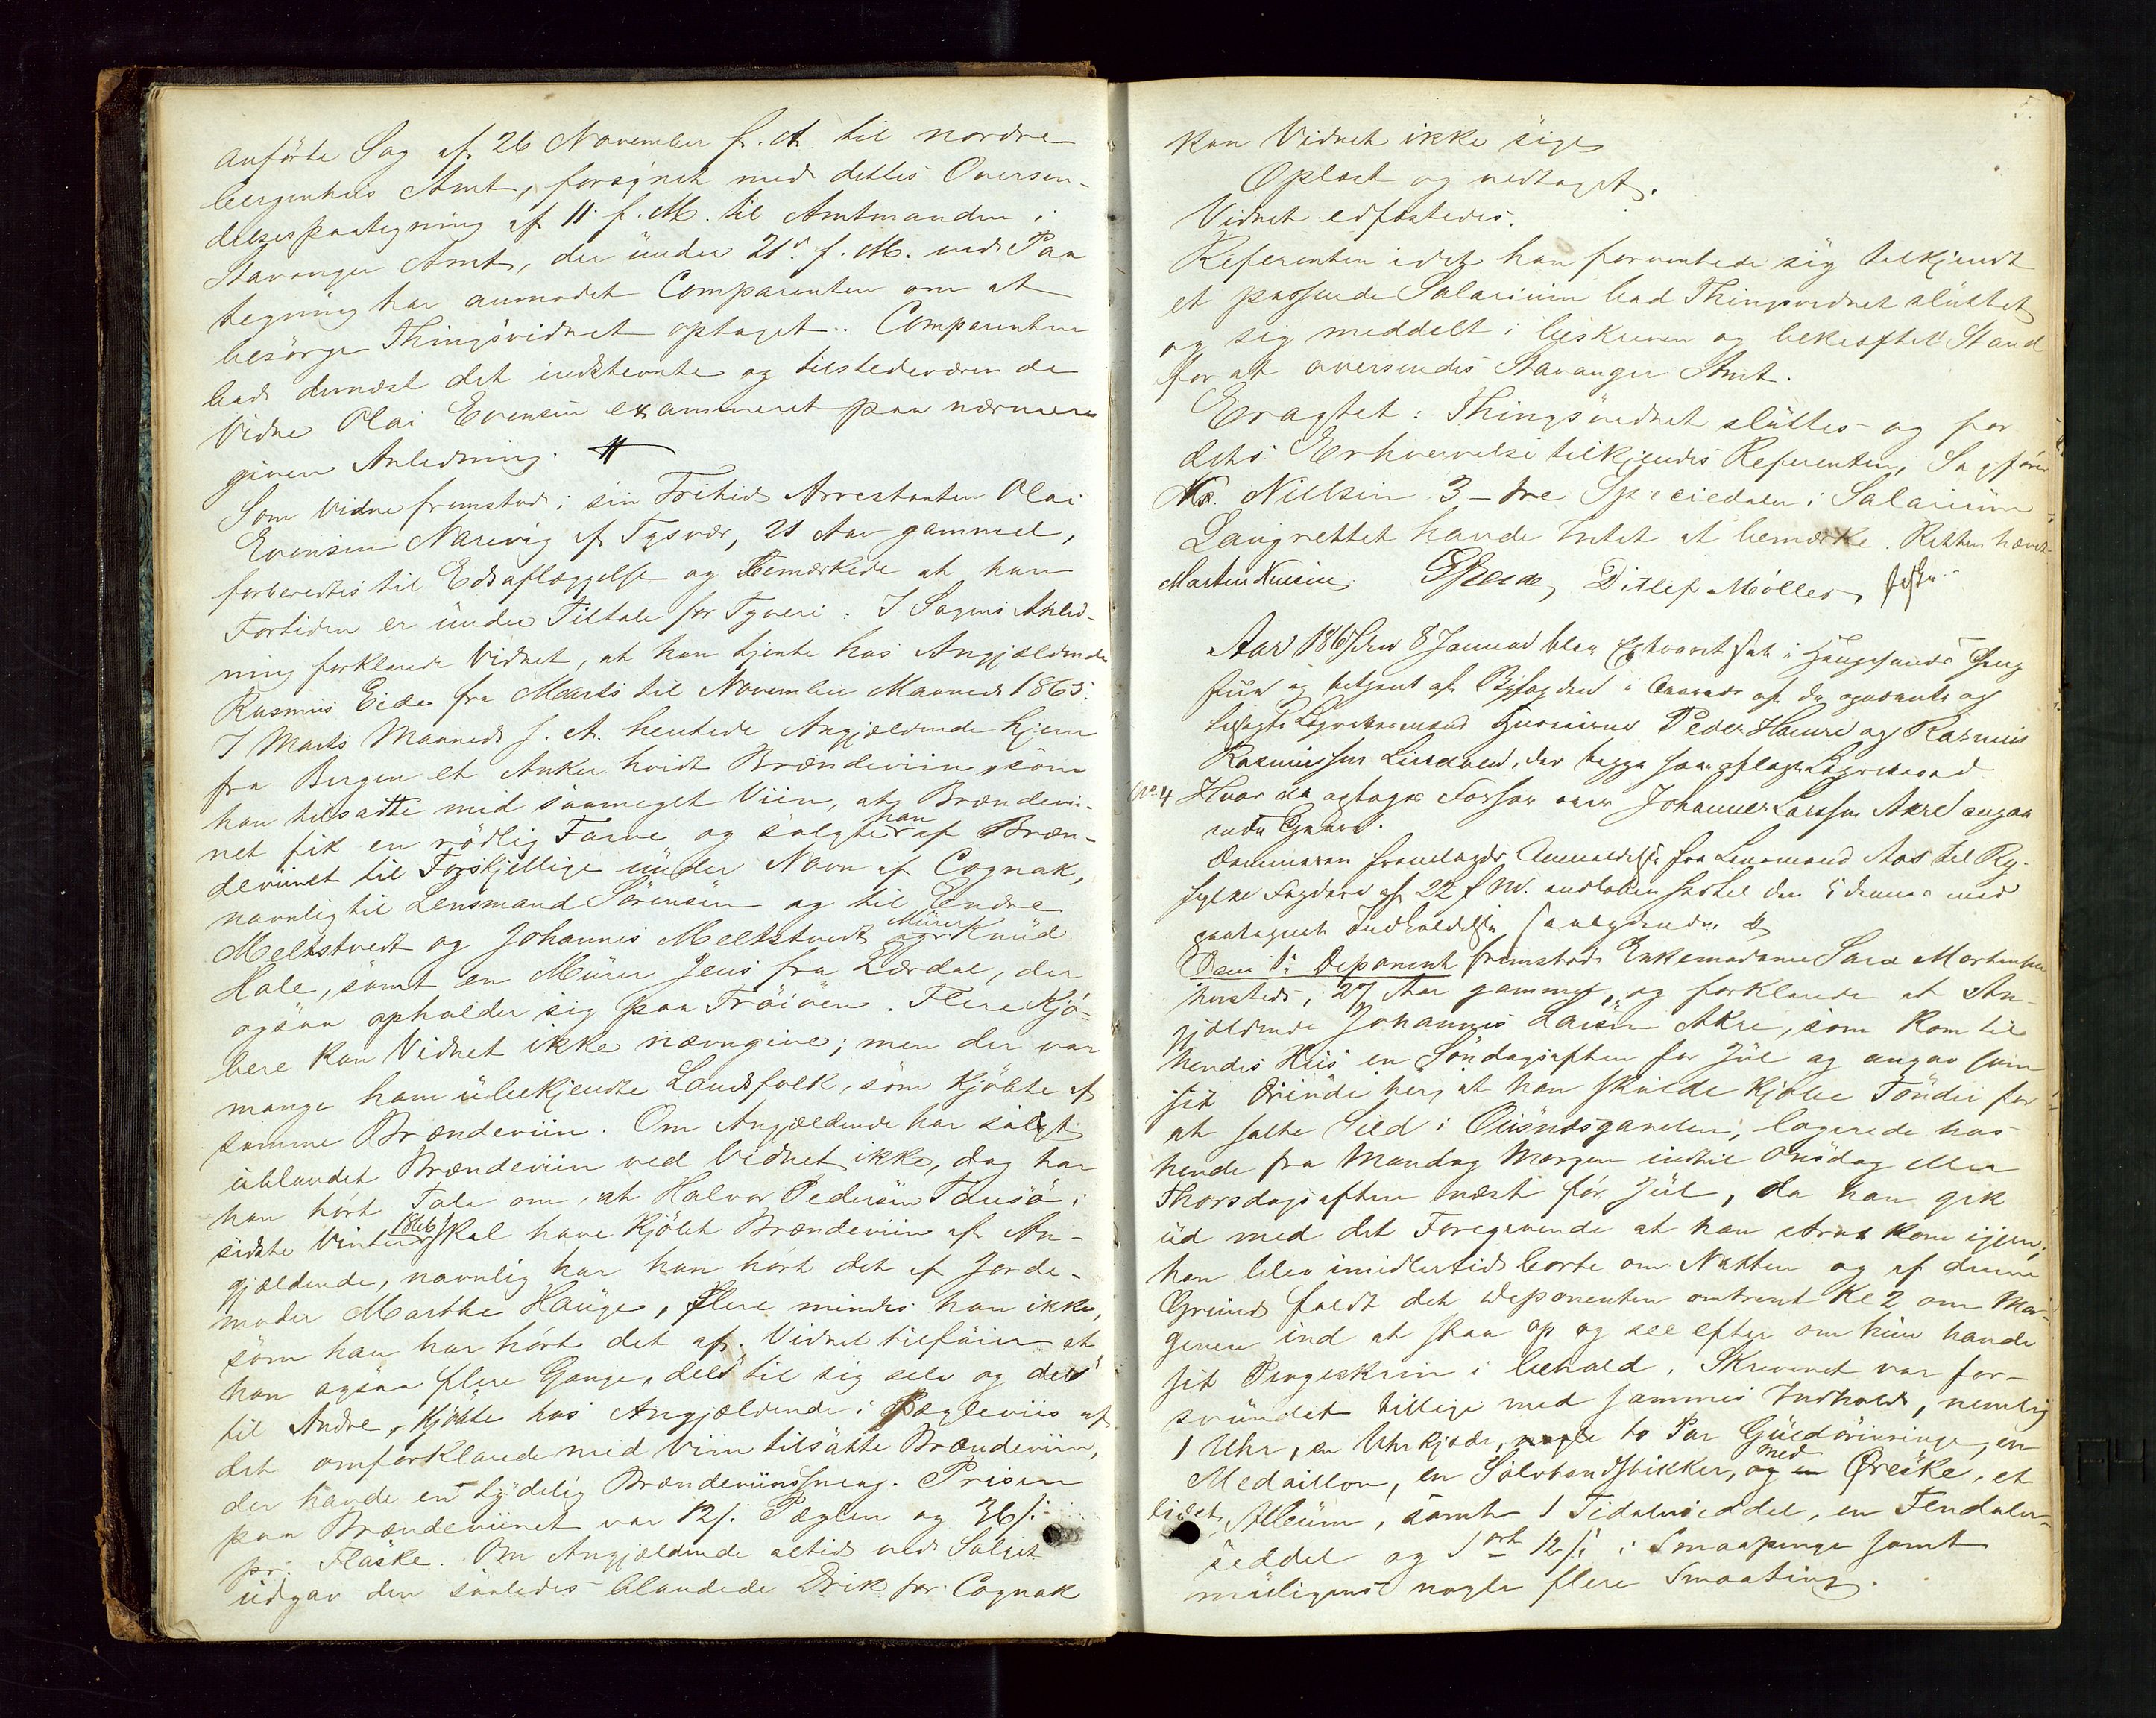 anförte Sag af 26 November f. A. til nordre
bergenhus Amt, forsÿnet med dettes Oversen-
delsespaategning af 11 f. M. til Amtmanden i
Stavanger Amt, der ünder 21de f. M. ved Paa
tegning har anmodet Comparenten om at
besörge Thingsvidnet optaget. Comparenten
bad dernæst det indstevnte og tilstedeværende
Vidne Olai Evensen examineret paa nærmere
given Anledning. #
Som Vidne fremstod i sin Fritid Arrestanten Olai
Evensen Narevig af Tysvær, 21 Aar gammel,
forberedtes til Edsaflæggelse og bemærkede at han
Fortiden er ünder Tiltale for Tyveri. I Sagens Anled-
ning forklarede Vidnet, at han tjente hos Angjældende
Rasmus Eide fra Marts til November Maaned 1865.
I Marts Maaned f. A. hentede Angjældende hjem
fra Bergen et Anker hvidt Brændeviin, som
han tilsatte med saameget Viin, at Brændevi-
net fik en rödlig Farve og solgte han af Bræn-
deviinet til Forskjellige ünder Navn af Cognak,
navnlig til Lensmand Sörensen og til Endre
Meltstvedt og Johannis Meltstvedt og Mürer Knüd
Hole, samt en Mürer Jens fra Lærdal, der
ogsaa opholder sig paa Fröiöen. Flere Kjö-
bere kan Vidnet ikke nævngive; men der var
mange ham übekjendte Landsfolk, som kjöbte af
samme Brændeviin. Om Angjældende har solgt
üblandet Brændeviin ved Vidnet ikke, dog har
han hört Tale om, at Halvor Pedersen Fansö i
sidste Vinter 1866 skal have kjöbt Brændeviin af An-
gjældende, navnlig har han hört det af Jorde-
moder Marthe Hauge, flere mindes han ikke,
som han har hört det af. Vidnet tilföier at
han ogsaa flere Gange, dels til sig selv og dels
til Andre, kjöbte hos Angjældende i Pægleviis af
det omforklarede med Viin tilsatte Brændeviin,
der havde en tÿdelig Brændeviinssmag. Prisen
paa Brændeviinet var 12 s. Pæglen og 36 s.
pr. Flaske. Om Angjældende altid ved Salget
üdgav den saaledes blandede Drik for Cognak
5.
kan Vidnet ikke sige
Oplæst og vedtaget.
Vidnet edfæstedes.
Referenten idet han forventede sig tilkjendt
et passende Salarium bad Thingsvidnet slüttet
og sig meddelt i beskreven og bekræftet Stand
for at oversendes Stavanger Amt.
Eragtet: Thingsvidnet slüttes og for
dets Erhvervelse tilkjendes Referenten, Sagförer
Nielsen 3 – tre Speciedaler i Salarium
Laugrettet havde Intet at bemærke. Retten hævet
Morten Ditlef Møller,
Aar 1867 den 8 Januar blev Extraret sat i Haugesunds Thing
stue og betjent af Byfogden i Overvær af de opnævnte og
Laugrettesmænd Husmænd Peder Hauge og Rasmus
Rasmussen, der begge har aflagt Laugrettesed
No 4 Hvor da optoges Forhør over Johannes Larssen Akre angaa
ende Tyveri.
Dommeren fremlagde Anmeldelse fra Lensmand Aas til Ry-
fylke Fogderi af 22 f. M. indløben hertil den 5 dennes med
paategnet saalydende #
Som 1ste Deponent fremstod Enkemadame Sara Mortensen
hersteds, 27 Aar gammel, og forklarede at An-
gjældende Johannis Larsen Akre, som kom til
hendes Hüs en Söndagsaften for Jül og angav som
sit Ærinde her, at han skulde kjöbe Tönder for
at salte Sild i, logerede hos
hende fra Mandag Morgen indtil Onsdag eller
Thorsdagsaften næst för Jül, da han gik
üd med det Foregivende at han strax kom igjen;
han blev imidlertid borte om Natten og af denne
Gründ faldt det Deponenten omtrent Kl 2 om Mor-
genen ind at staa op og see efter om hun havde
sit Pengeskrin i behold. Skrinet var for-
svündet tillige med sammes Indhold, nemlig
1 Uhr, en Uhrkjede, nogle to Par Güldörinringe, en
Medaillon, en Sölvhandstikker, og en med Øreske, et
lidet Albüm, samt 1 Tidalerseddel, en Femdaler-
seddel og 1 ort 12 s. i Smaapenge samt
müligens nogle flere Smaating.